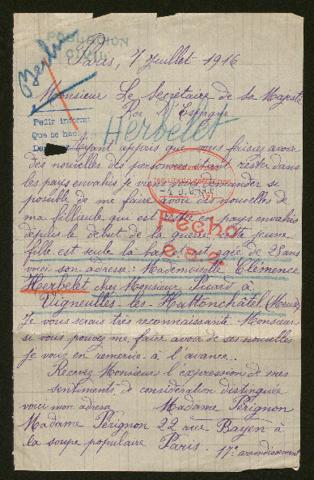 POBLACION
CIVIL
Berlin
Paris, 7 Juillet 1916
Monsieur Le Secrétaire de sa Majesté
Roi Espagne
Herbelet
Pedir inform
Que se hac
Ayant appris que vous faisiez avoir
des nouvelles des personnes étant restés dans
les pays envahis je viens vous demander si
possible de me faire avoir des nouvelles de
ma filleule qui est restée en pays envahis
depuis le début de la guerre cette jeune
Fecho
fille est seule la bas est agée de 23 ans
voici son adresse: Mademoiselle Clémence
Herbelet chez Monsieur Picard à
Vigneulles les Hattonchâtel (Meuse)
Je vous serais très reconnaissante Monsieur
si vous pouvez me faire avoir de ses nouvelles
je vous en remercie à l'avance..
Recevez Monsieur l'expression de mes
sentiments de considération distinguée
voici mon adresse Madame Pérignon
Madame Pérignon 22 rue Bayen à
la soupe populaire Paris. 17e arrondissement